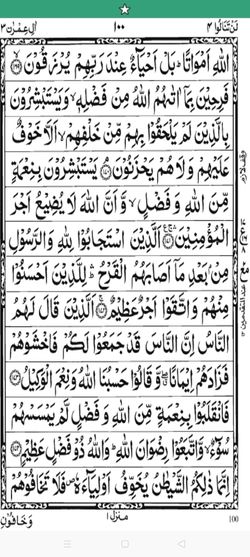 لَنْ تَنَالُوا ۴ ۱۰۰ اٰلِ عِمْرٰن ۳
اللّٰهِ اَمْوَاتًا ؕ بَلْ اَحْيَآءٌ عِنْدَ رَبِّهِمْ يُرْزَقُوْنَ ۝۱۶۹
فَرِحِيْنَ بِمَاۤ اٰتٰىهُمُ اللّٰهُ مِنْ فَضْلِهٖ ۙ وَيَسْتَبْشِرُوْنَ
بِالَّذِيْنَ لَمْ يَلْحَقُوْا بِهِمْ مِّنْ خَلْفِهِمْ ۙ اَلَّا خَوْفٌ
عَلَيْهِمْ وَلَا هُمْ يَحْزَنُوْنَ ۝۱۷۰ يَسْتَبْشِرُوْنَ بِنِعْمَةٍ
مِّنَ اللّٰهِ وَفَضْلٍ ۙ وَّاَنَّ اللّٰهَ لَا يُضِيْعُ اَجْرَ
الْمُؤْمِنِيْنَ ۝۱۷۱ اَلَّذِيْنَ اسْتَجَابُوْا لِلّٰهِ وَالرَّسُوْلِ
مِنْۢ بَعْدِ مَاۤ اَصَابَهُمُ الْقَرْحُ ؕ لِلَّذِيْنَ اَحْسَنُوْا
مِنْهُمْ وَاتَّقَوْا اَجْرٌ عَظِيْمٌ ۝۱۷۲ اَلَّذِيْنَ قَالَ لَهُمُ
النَّاسُ اِنَّ النَّاسَ قَدْ جَمَعُوْا لَكُمْ فَاخْشَوْهُمْ
فَزَادَهُمْ اِيْمَانًا ۖۗ وَّقَالُوْا حَسْبُنَا اللّٰهُ وَنِعْمَ الْوَكِيْلُ ۝۱۷۳
فَانْقَلَبُوْا بِنِعْمَةٍ مِّنَ اللّٰهِ وَفَضْلٍ لَّمْ يَمْسَسْهُمْ
سُوْٓءٌ ۙ وَّاتَّبَعُوْا رِضْوَانَ اللّٰهِ ؕ وَاللّٰهُ ذُوْ فَضْلٍ عَظِيْمٍ ۝۱۷۴
اِنَّمَا ذٰلِكُمُ الشَّيْطٰنُ يُخَوِّفُ اَوْلِيَآءَهٗ ۪ فَلَا تَخَافُوْهُمْ
وَخَافُوْنِ منزل ۱ 100